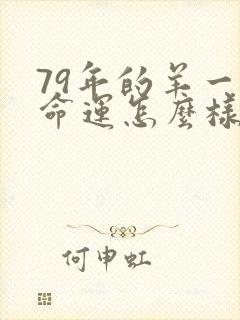 79年的羊一
命運怎麼樣
何申虹